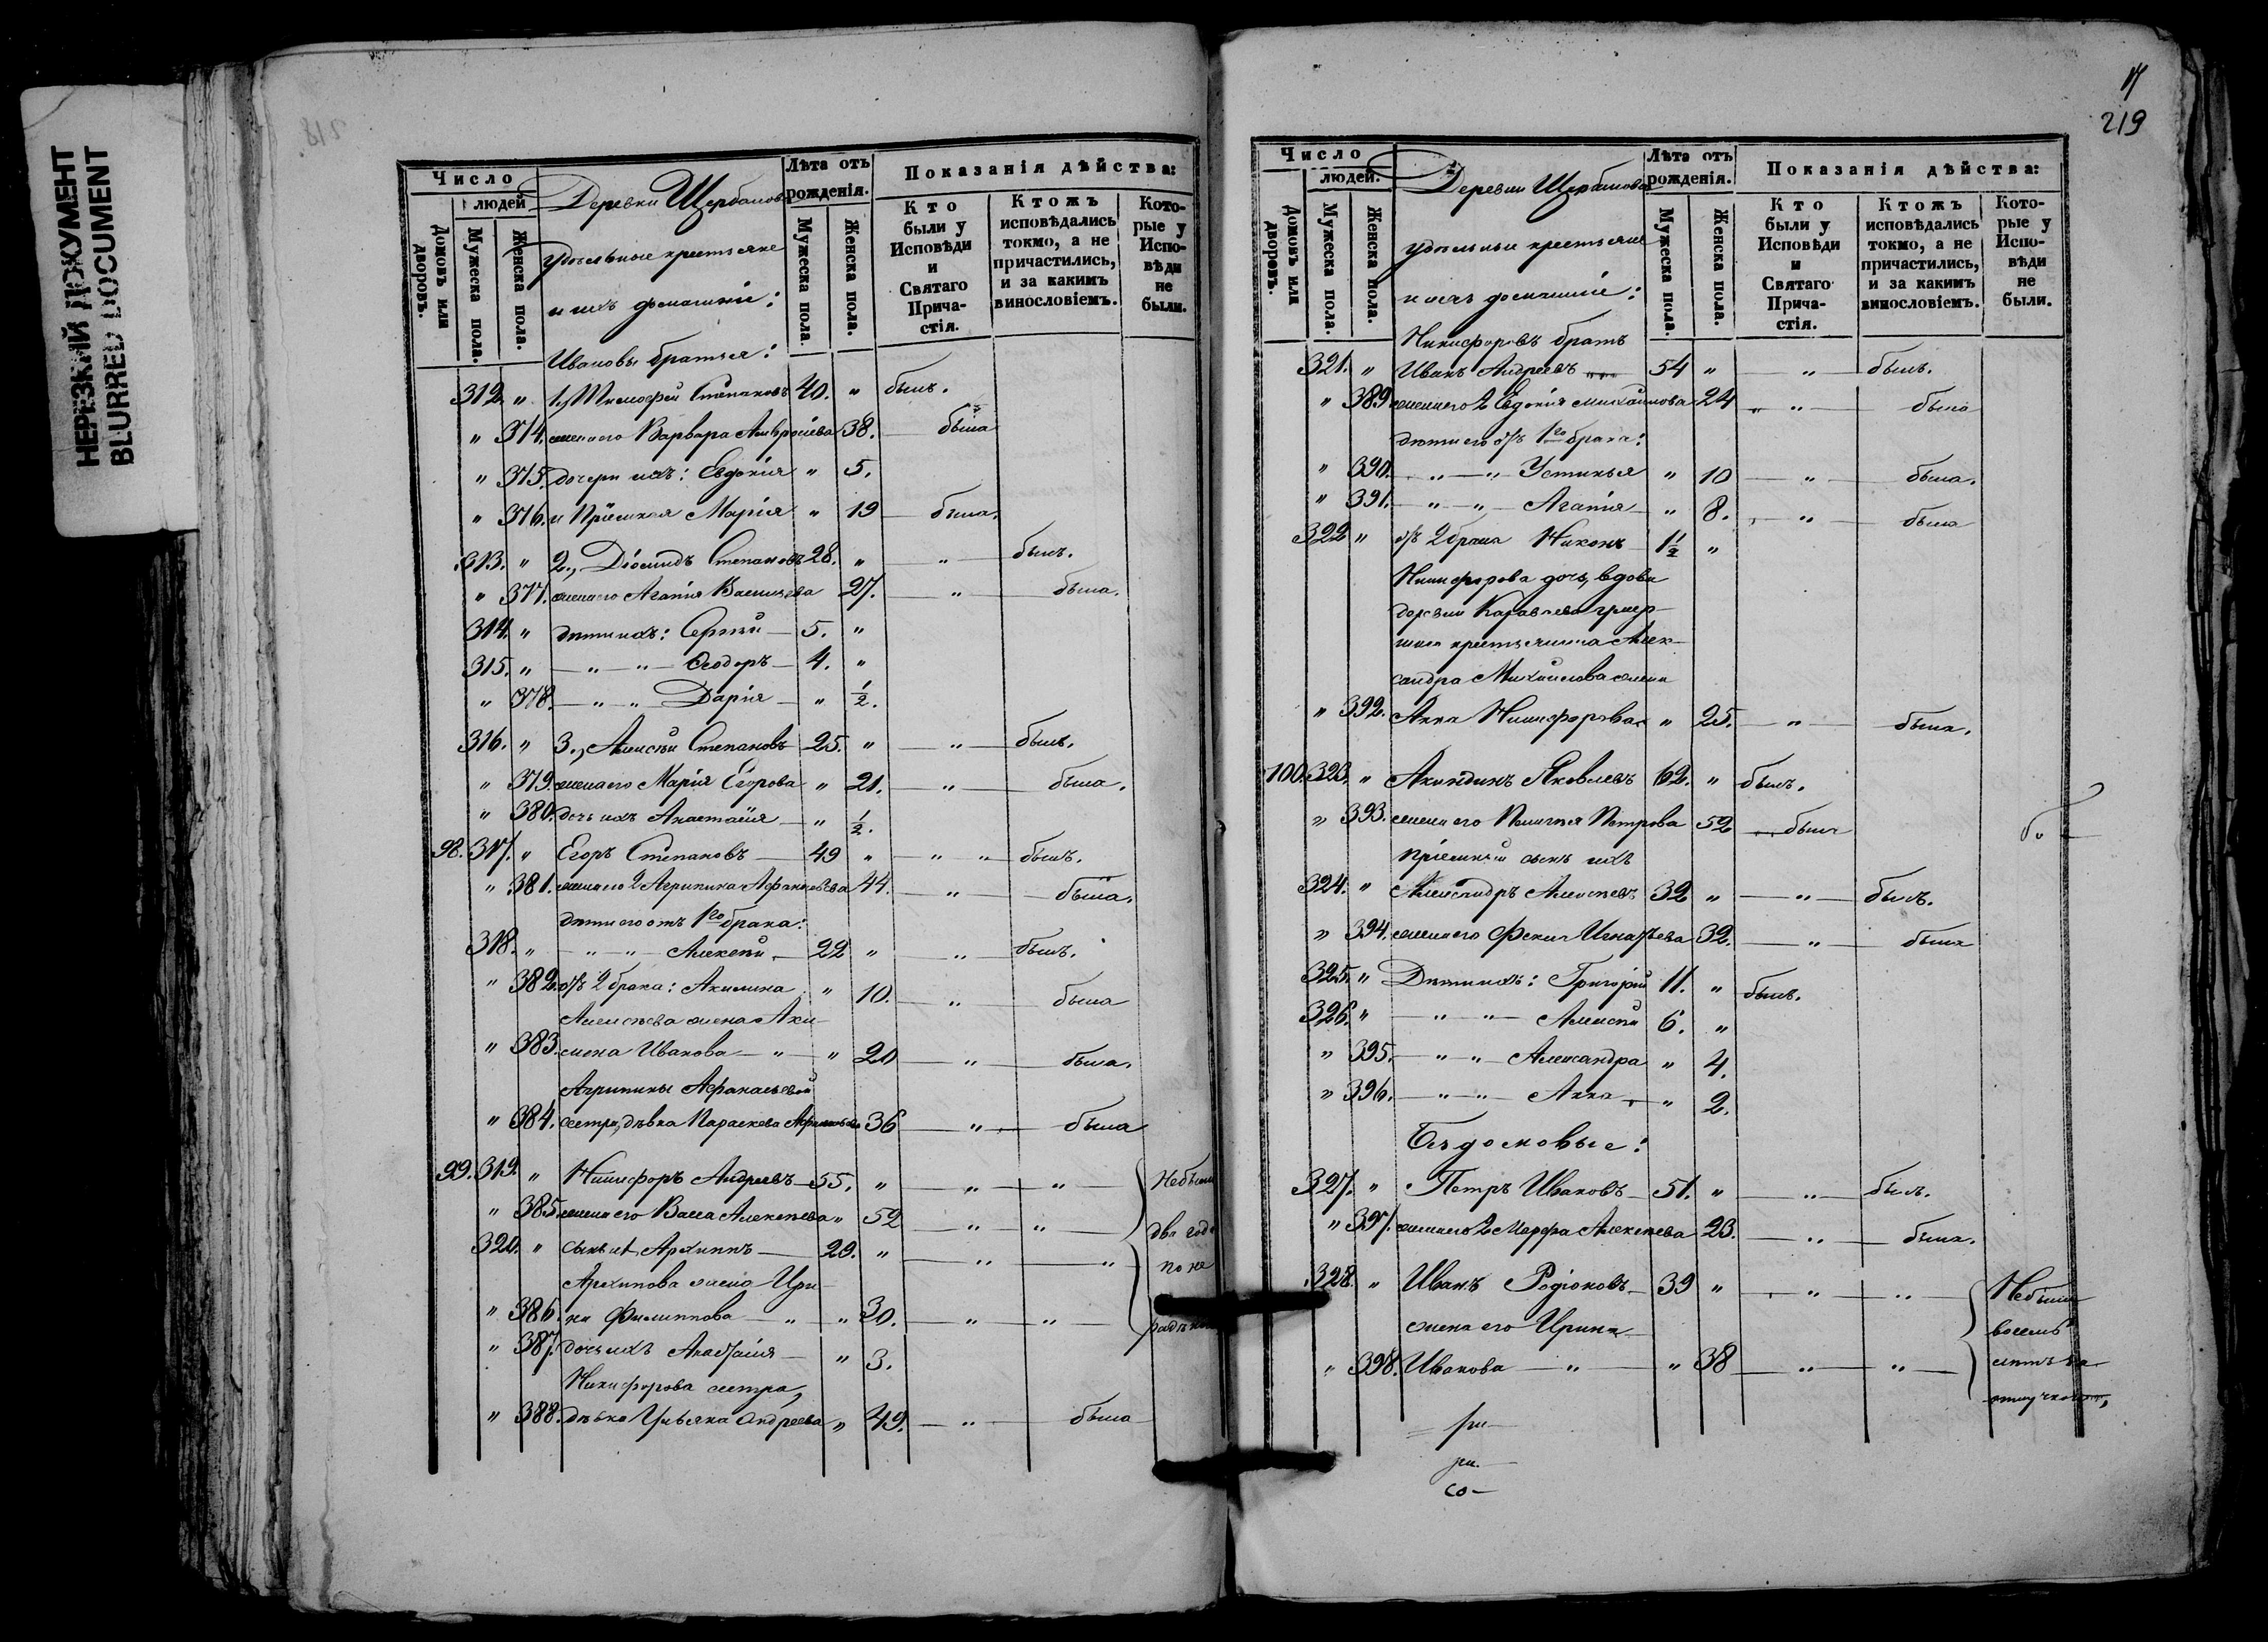 НЕРЕЗКИЙ ДОКУМЕНТ
BLURRED DOCUMENT
Число
людей
Домовъ или дворовъ.
Мужеска пола.
Женска пола.
Деревни Щербатова
удѣльные крестьяне
и ихъ домашніе:
Лѣта отъ рожденія.
Мужеска пола.
Женска пола.
Показанія дѣйства:
Кто были у Исповѣди и Святаго Причастія.
Ктожъ исповѣдались токмо, а не причастились, и за какимъ винословіемъ.
Которые у Исповѣди не были.
Ивановы братья:
312. " 1, Тимофей Степановъ 40. " былъ.
" 374. жена его Варвара Амвросіева 38. была
" 375. дочери ихъ: Евдокія " 5.
" 376. и пріемная Марія " 19 была.
313. " 2., Діомидъ Степановъ 28. " " былъ.
" 377. жена его Агапія Васильева 27. " была.
314. " дѣти ихъ: Сергѣй 5. "
315. " " " Ѳеодоръ 4. "
" 378. " " Дарія " 1/2.
316. " 3., Алексѣй Степановъ 25. " " былъ.
" 379. жена его Марія Егорова " 21. " была.
" 380. дочь ихъ Анастасія " 1/2.
98. 317. " Егоръ Степановъ 49 " " " былъ.
" 381. жена его 2 Агрипина Афанасьева 44. " была.
дѣти его отъ 1го брака:
318. " " " Алексѣй 22 " " былъ.
" 382. отъ 2 брака: Акилина " 10. " была
Алексѣева жена Аки-
" 383. лина Иванова " " 20 " была.
Агрипины Афанасьевой
" 384. сестра, дѣвка Параскева Афанасьева 36 " была
99. 319. " Никифоръ Андреевъ 55. " " " Небыли
" 385. жена его Васса Алексѣева " 52 " " два года
320. " сынъ ихъ Архиппъ 29. " " " по не
Архипова жена Ири-
" 386. на Филиппова " " 30. " "
" 387. дочь ихъ Анастасія " 3.
Никифорова сестра,
" 388. дѣвка Ульяна Андреева " 49. " была
219
Число
людей.
Домовъ или дворовъ.
Мужеска пола.
Женска пола.
Деревни Щербатова
удѣльные крестьяне
и ихъ домашніе:
Лѣта отъ рожденія.
Мужеска пола.
Женска пола.
Показанія дѣйства:
Кто были у Исповѣди и Святаго Причастія.
Ктожъ исповѣдались токмо, а не причастились, и за какимъ винословіемъ.
Которые у Исповѣди не были.
Никифоровъ братъ
321. " Иванъ Андреевъ 54 " " былъ.
" 389. жена его 2 Евдокія Михайлова 24 " " была
дѣти его отъ 1го брака:
" 390. " " Устинья " 10 " была.
" 391. " " Агапія " 8. " была
322 " отъ 2 брака Никонъ 1 1/2 "
Никифорова дочь, вдова
деревни
крестьянина Алек-
сандра Михайлова жена
" 392. Анна Никифорова " 25. " была.
100. 323. " Акиндинъ Яковлевъ 62. " былъ.
" 393. жена его Петрова 52 была
пріемный сынъ ихъ
324. " Александръ Алексѣевъ 32 " " былъ.
" 394. жена его Фекла Игнатьева 32. " была
325. " Дѣти ихъ: Григорій 11. " былъ.
326. " " " Алексѣй 6. "
" 395. " " Александра " 4.
" 396. " " Анна " 2.
Бездомовые:
327. " Петръ Ивановъ 51. " " былъ.
" 397. жена его 2 Марфа Алексѣева 23. " была.
328. " Иванъ Родіоновъ 39 " " " Небыли
жена его Ирина восемь
" 398. Иванова " " 38 " " лѣтъ за